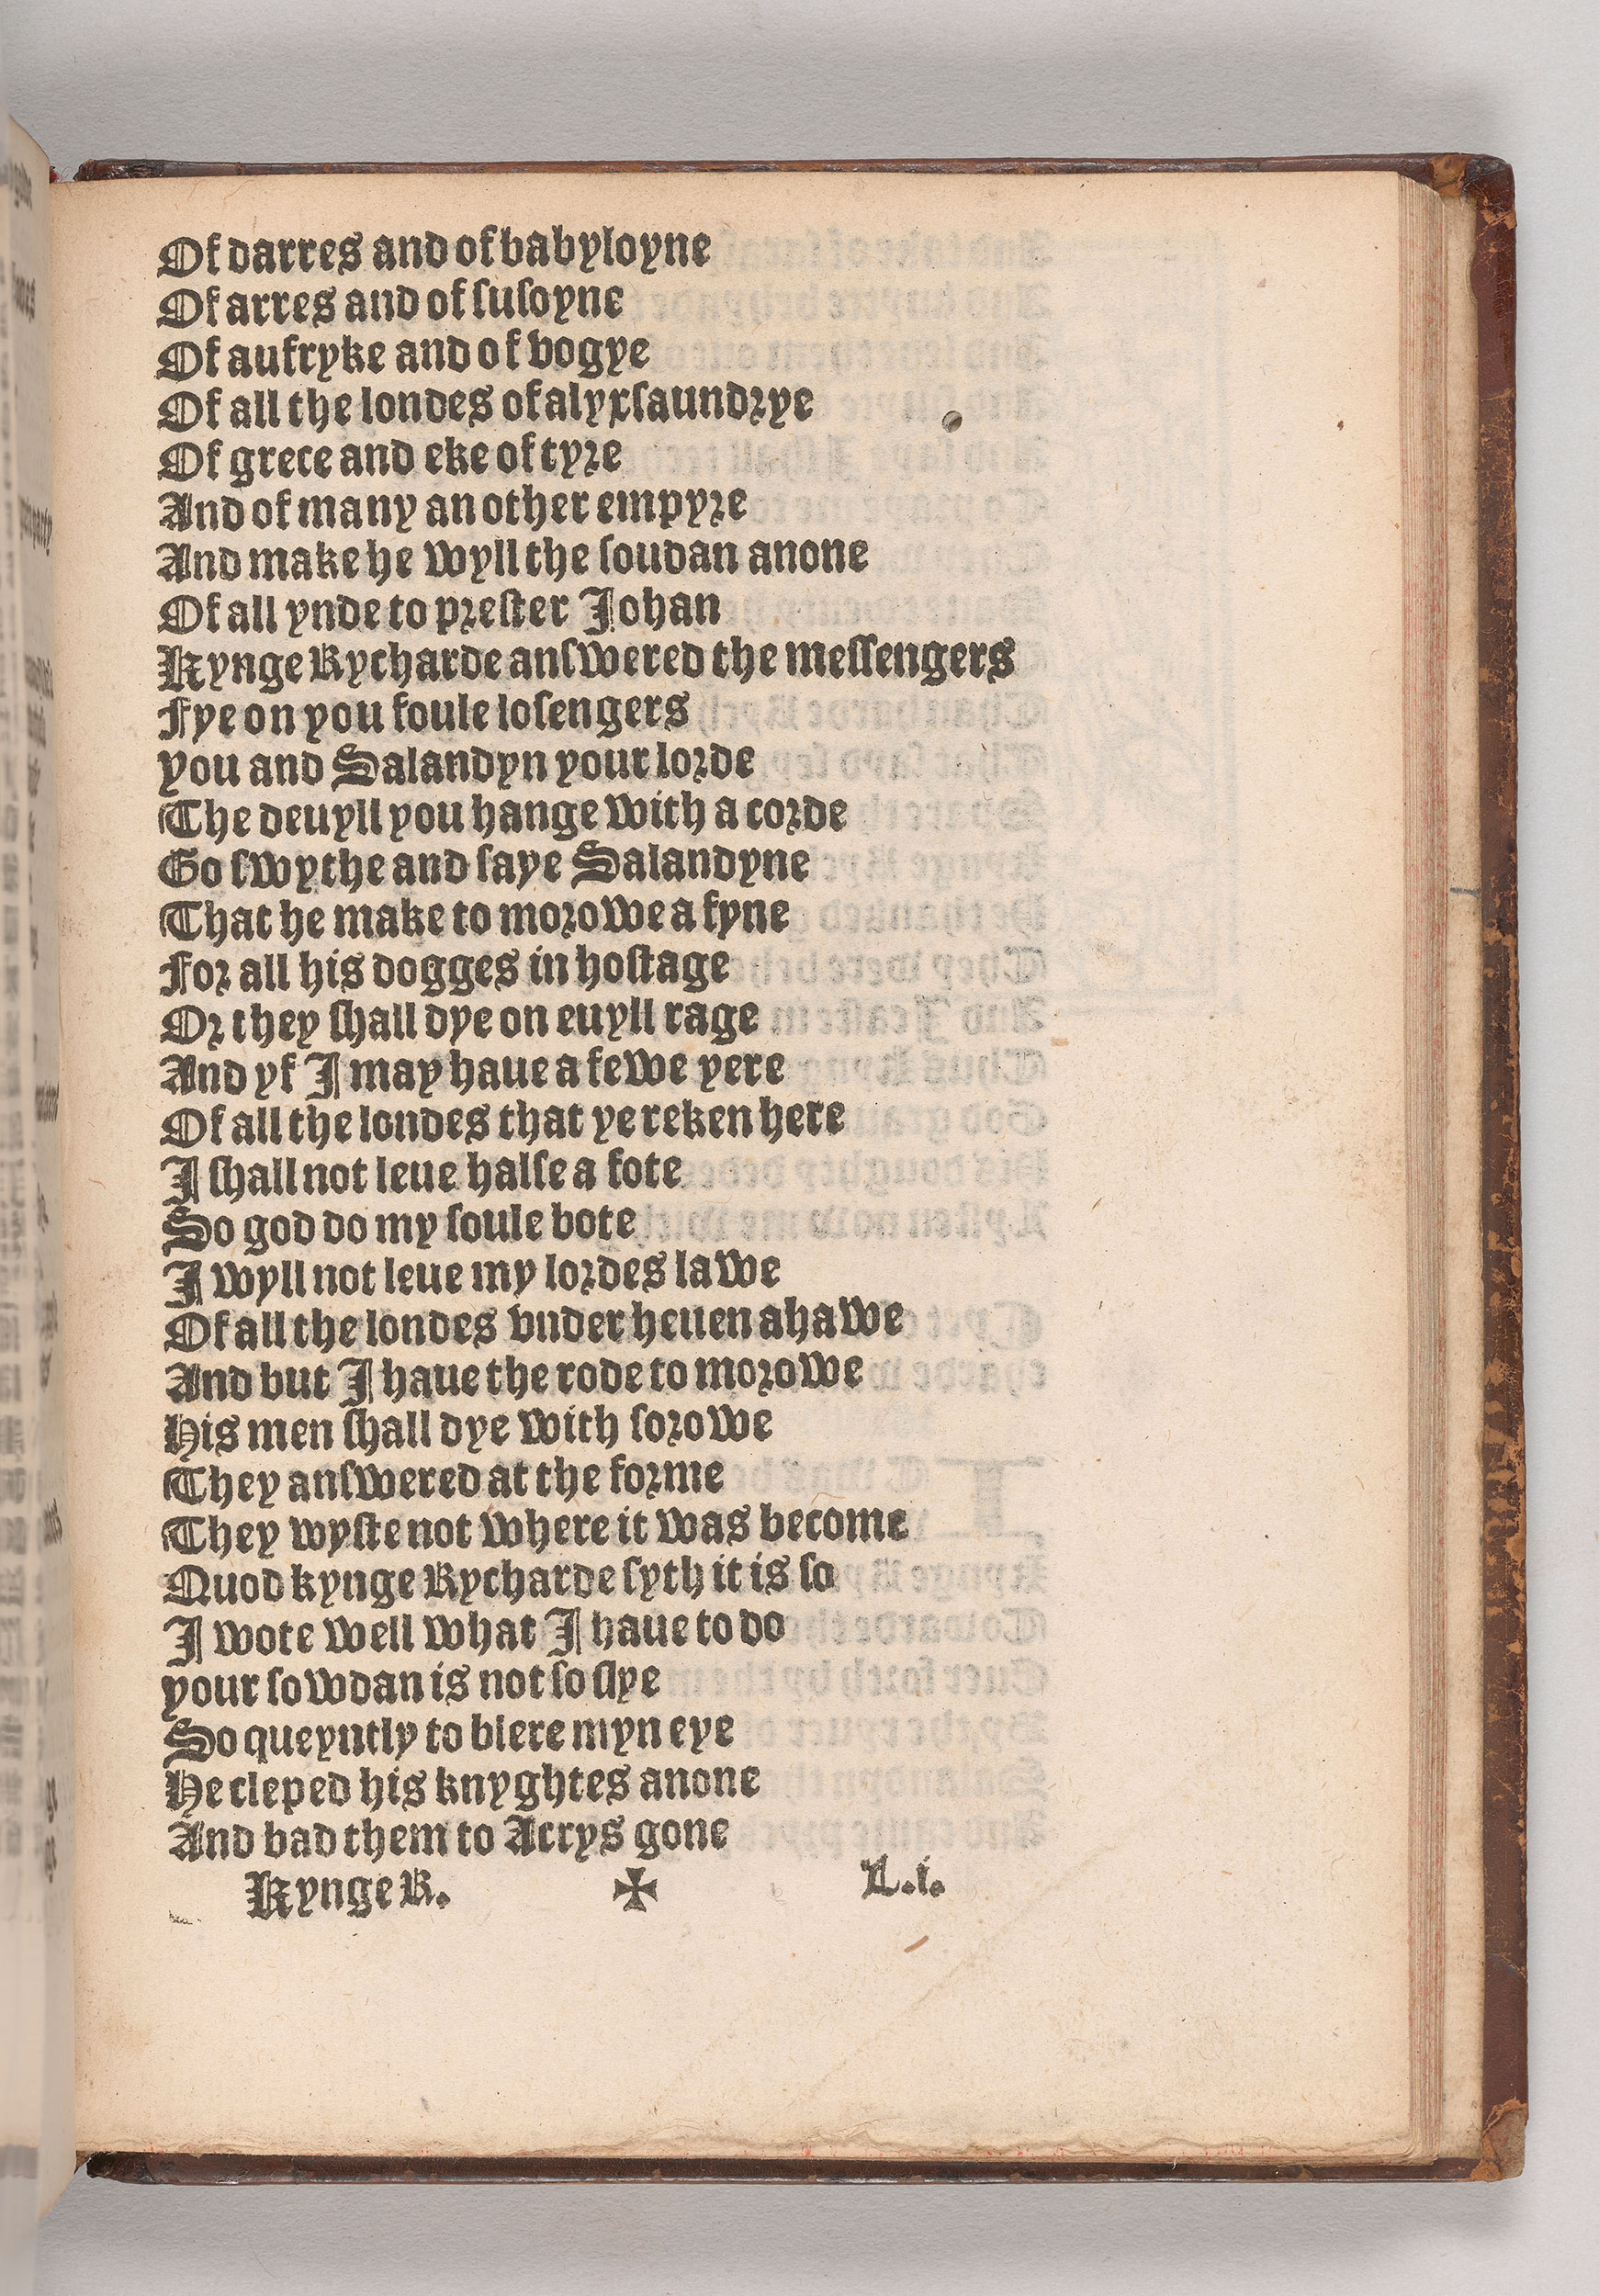 Of darres and of babyloyne
Of arres and of ſuſoyne
Of aufryke and of bogye
Of all the londes of alyxſaundrye
Of grece and eke of tyre
And of many an other empyre
And make he wyll the ſoudan anone
Of all ynde to preſter Johan
Kynge Rycharde anſwered the meſſengers
Fye on you foule loſengers
you and Salandyn your lorde
The deuyll you hange with a corde
Go ſwythe and ſaye Salandyne
That he make to morowe a fyne
For all his dogges in hoſtage
Or they ſhall dye on euyll rage
And yf I may haue a fewe yere
Of all the londes that ye reken here
I ſhall not leue halfe a fote
So god do my ſoule bote
I wyll not leue my lordes lawe
Of all the londes vnder heuen ahawe
And but I haue the rode to morowe
His men ſhall dye with ſorowe
They anſwered at the forme
They wyſte not where it was become
Quod kynge Rycharde ſyth it is ſo
I wote well what I haue to do
your ſowdan is not ſo ſlye
So queyntly to blere myn eye
He cleped his knyghtes anone
And bad them to Acrys gone
Kynge R. ✠ L.i.